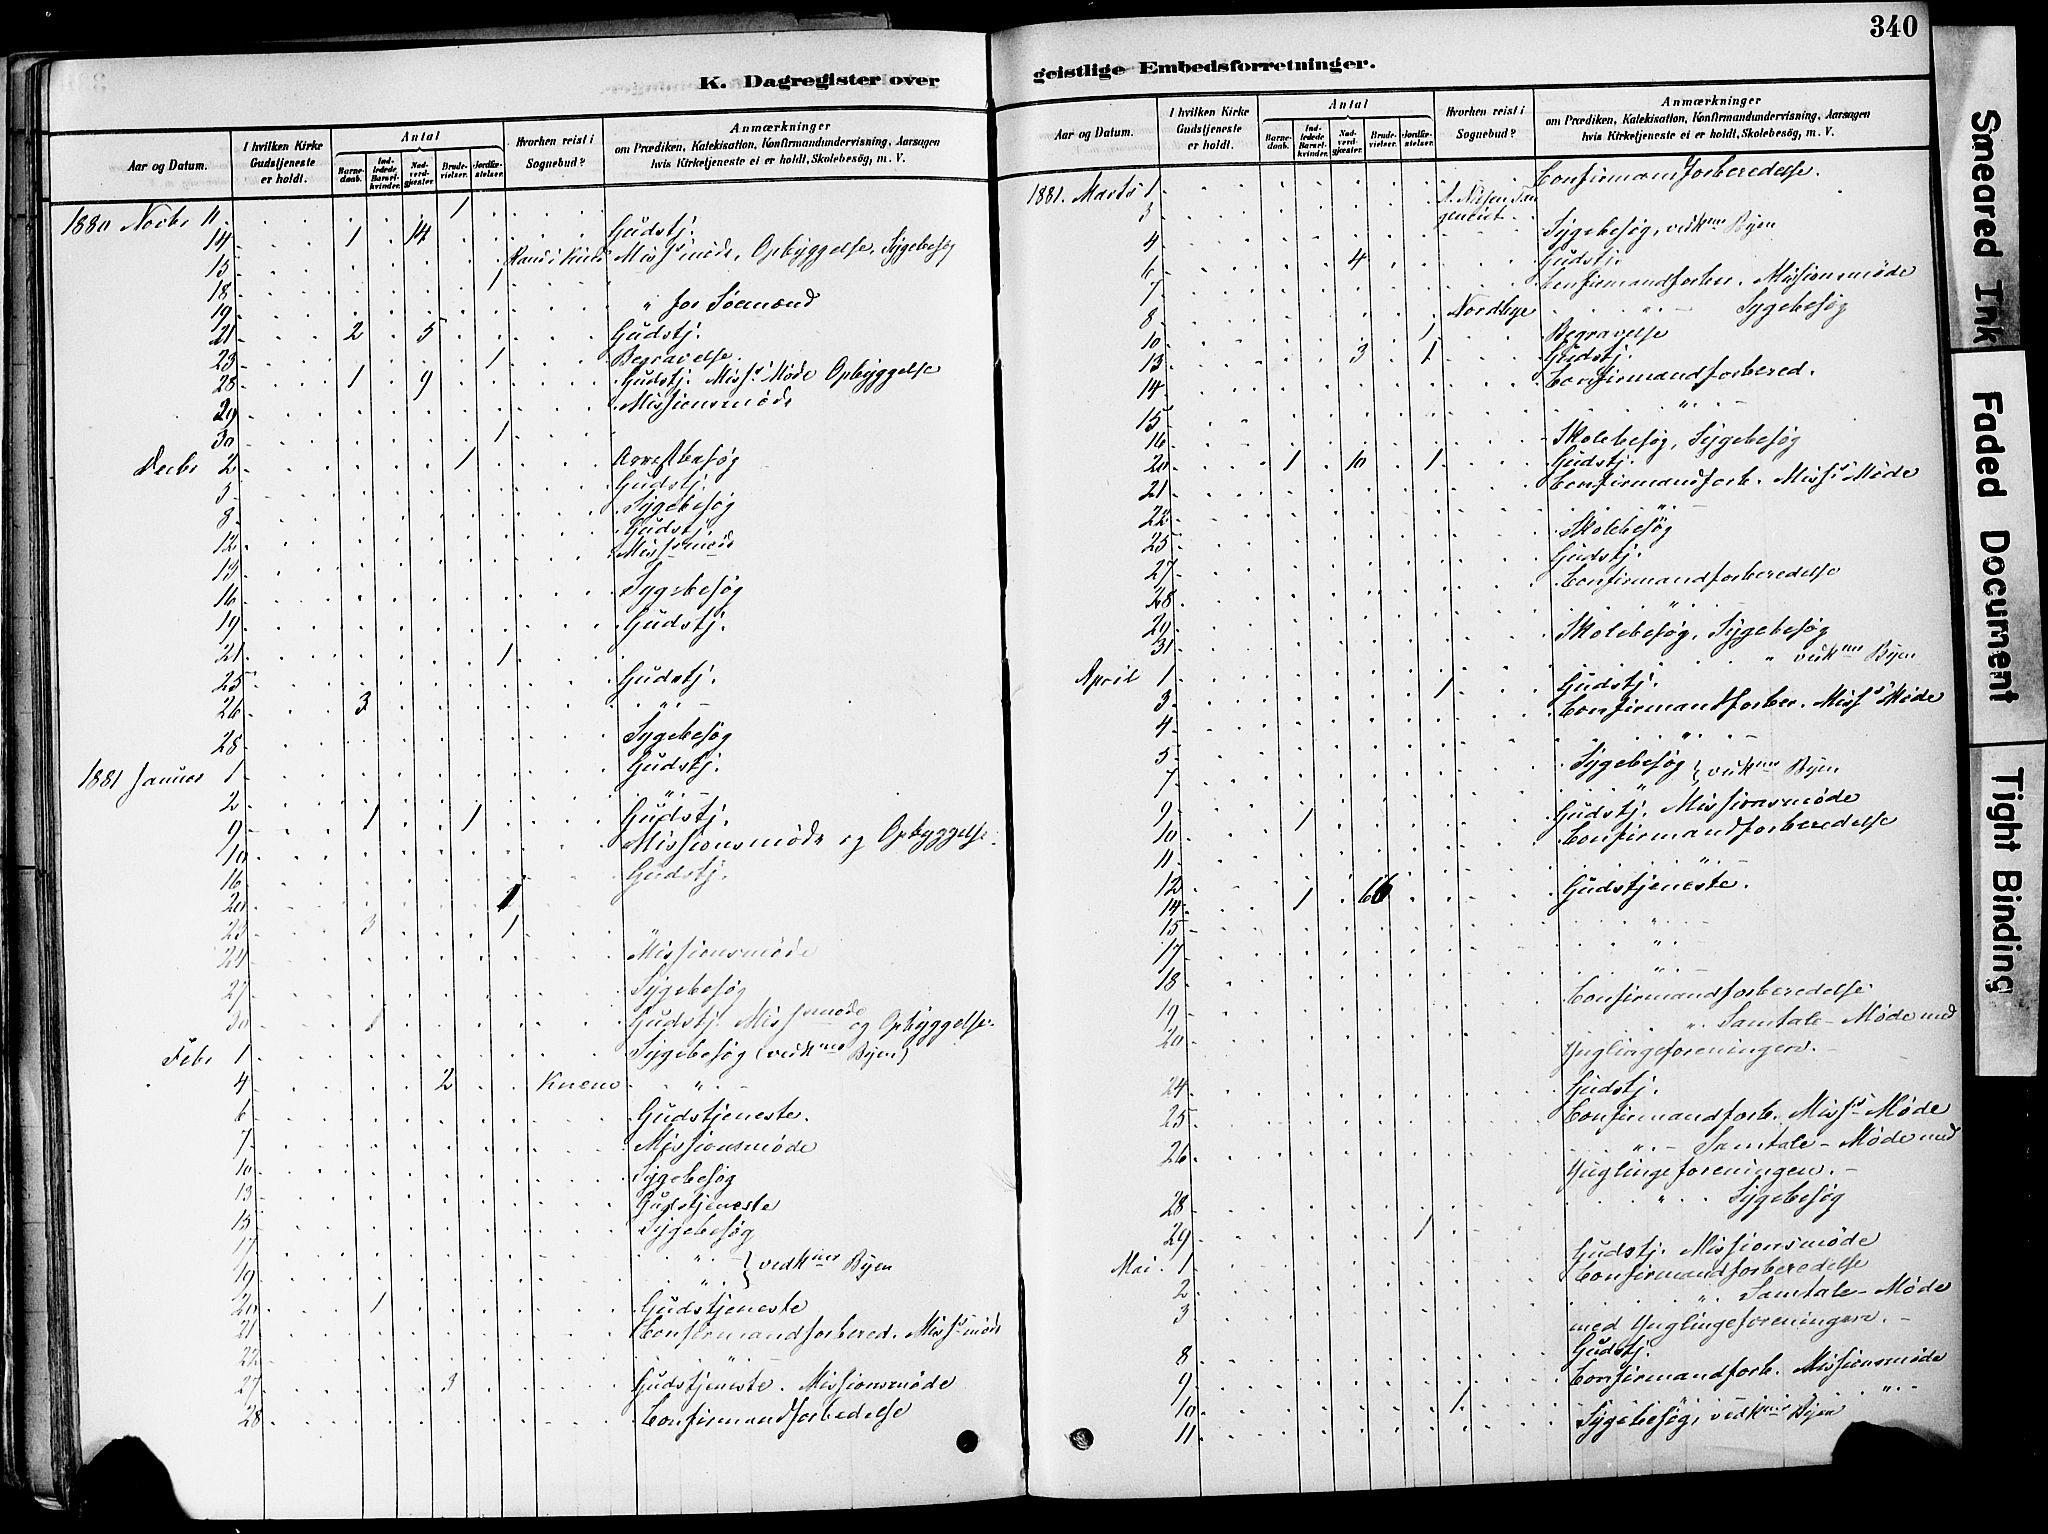 340
K. Dagregister over
geistlige Embedsforretninger.
Aar og Datum.
I hvilken Kirke Gudstjeneste er holdt.
Antal
Barnedaab.
Indledede Barselkvinder.
Nadverdgjæster.
Brudevielser.
Jordfæstelser.
Hvorhen reist i Sognebud?
Anmærkninger
om Prædiken, Katekisation, Konfirmandundervisning, Aarsagen
hvis Kirketjeneste ei er holdt, Skolebesøg, m. V.
1880 Novbr 11 1
14 1 14 Gudstj.
15 Missmøde, Opbyggelse, Sygebesøg
18 1
19 " for Sømænd
21 2 5 Gudstj.
23 1 Begravelse
28 1 9 Gudstj. Miss. Møde Opbyggelse
29 Missionsmøde
30 1
Decbr 2 1 Arrestbesøg
5 Gudstj.
8 Sygebesøg
12 Gudstj.
13 Missmøde
16 Sygebesøg
19 Gudstj.
21 1
25 Gudstj.
26 3 " -
28 Sygebesøg
1881 Januar 1 Gudstj.
2 " -
9 1 1 Gudstj.
10 Missionsmøde og Opbyggelse
16 Gudstj.
20 1
23 3 1 "
24 Missionsmøde
27 Sygebesøg
30 1 Gudstj. Missmøde og Opbyggelse
Febr 1 Sygebesøg (vedkmer Byen)
4 2 " -
6 Gudstjeneste.
7 Missionsmøde
10 Sygebesøg
13 Gudstjeneste
15 Sygebesøg
17 " } vedkmer Byen
19 "
20 1 Gudstjeneste
21 Confirmandforbered. Miss. møde
22 "
27 3 Gudstjeneste. Missionsmøde
28 Confirmandforbedelse
Aar og Datum.
I hvilken Kirke Gudstjeneste er holdt.
Antal
Barnedaab.
Indledede Barselkvinder.
Nadverdgjæster.
Brudevielser.
Jordfæstelser.
Hvorhen reist i Sognebud?
Anmærkninger
om Prædiken, Katekisation, Konfirmandundervisning, Aarsagen
hvis Kirketjeneste ei er holdt, Skolebesøg, m. V.
1881. Marts 1 Confirmandforberedelse.
3
4 Sygebesøg, vedkmer Byen
6 4 Gudstj.
7 Confirmandforber. Missionsmøde
8 " - Sygebesøg
10 1 Begravelse
13 3 1 Gudstj.
14 Confirmandforbered.
15 " -
16 Skolebesøg, Sygebesøg
20 1 10 1 Gudstj.
21 Confirmandforb. Miss. Møde
22 " -
25 Skolebesøg
27 Gudstj.
28 Confirmandforberedelse
29 "
31 Skolebesøg, Sygebesøg
April 1 " vedkmer Byen
3 1 Gudstj.
4 Confirmandforber. Miss. Møde
5 " -
7 Sygebesøg } vedkmer Byen
9 "
10 1 Gudstj. Missionsmøde
11 Confirmandforberedelse
12 " -
14 1 66 Gudstjeneste.
15 " -
17 " -
18 " -
19 Confirmandforberedelse
20 " Samtale-Møde med
Ynglingeforeningen. -
24 Gudstj.
25 Confirmandforb. Miss. Møde
26 " - Samtale-Møde med
Ynglingeforeningen. -
28 " Sygebesøg
29 1
Mai 1 Gudstj. Missionsmøde
2 Confirmandforberedelse
3 " Samtale-Møde
med Ynglingeforeningen. -
8 Gudstj.
9 Confirmandforb. Missionsmøde
10 1 " " -
11 Sygebesøg, vedkmer Byen
Smeared Ink
Faded Document
Tight Binding